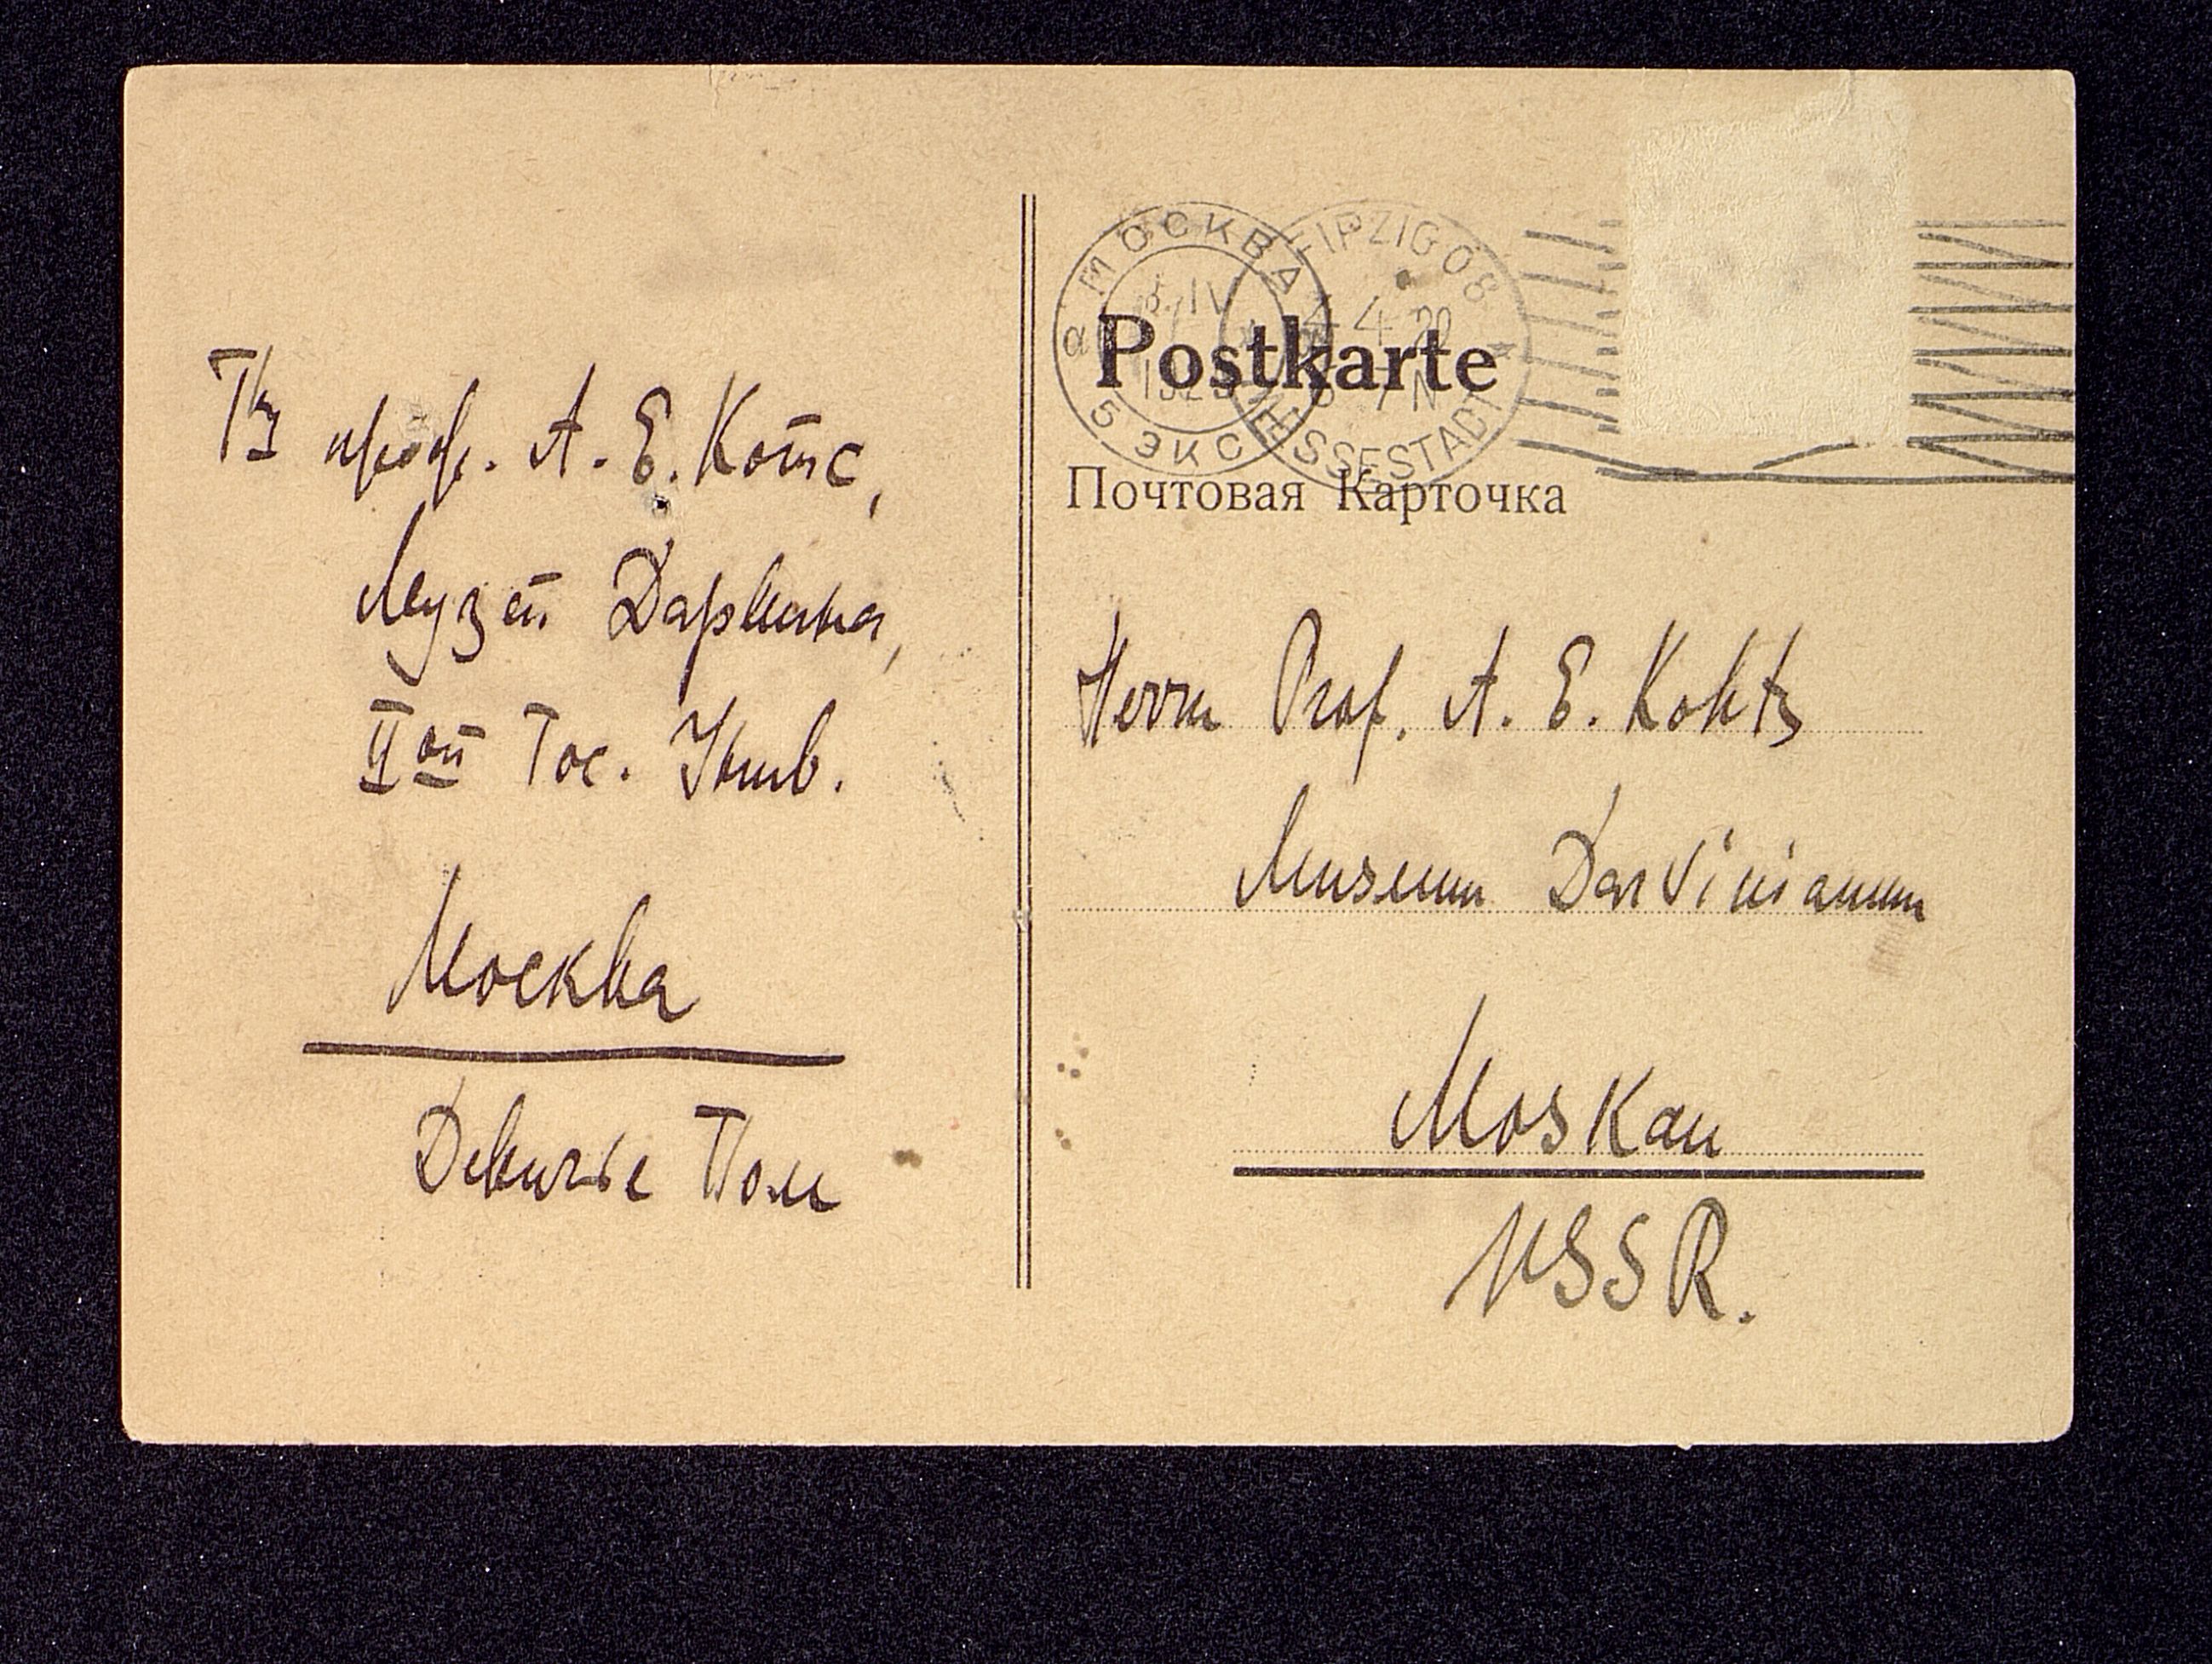 Гр проф. А. Е. Котс,
Музей Дарвина,
II ой Гос. Унив.
Москва
Девичье Поле
МОСКВА
5 ЭКС
LEIPZIG O 8
MESSESTADT
Postkarte
Почтовая Карточка
Herrn Prof. A. E. Kohts
Museum Darvinianum
Moskau
USSR.